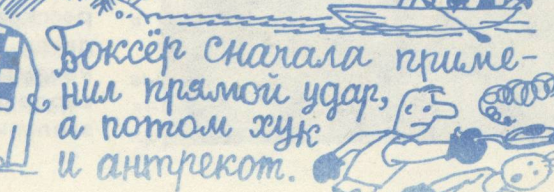 Боксёр сначала приме-
нил прямой удар,
а потом хук
и антрекот.